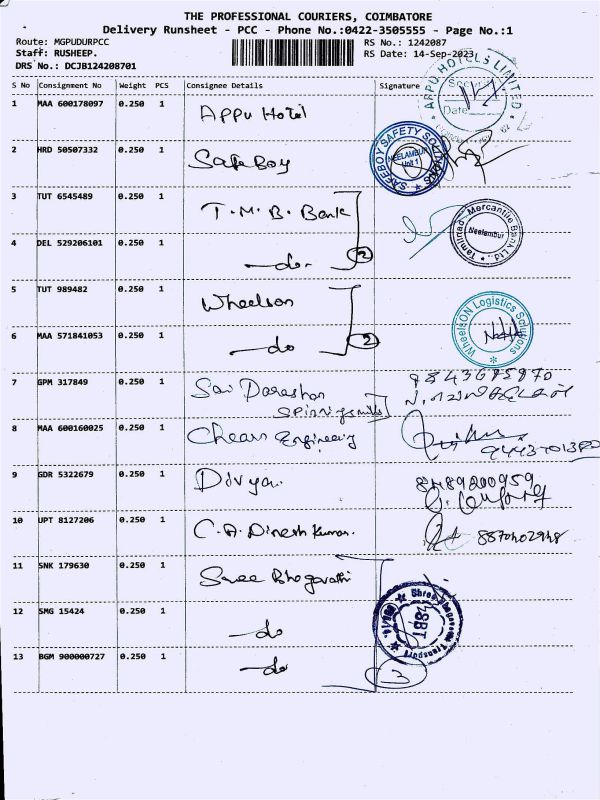 THE PROFESSIONAL COURIERS, COIMBATORE
Delivery Runsheet - PCC - Phone No.:0422-3505555 - Page No.:1
Route: MGPUDURPCC RS No.: 1242087
Staff: RUSHEEP. RS Date: 14-Sep-2023
DRS No.: DCJB124208701
S No Consignment No Weight PCS Consignee Details Signature
APPU HOTELS LIMITED
Security
Date
1 MAA 600178097 0.250 1 Appu Hotel
2 HRD 50507332 0.250 1 SafeBoy
SAFEBOY SAFETY SOLUTIONS
NEELAMBUR
Unit 1
3 TUT 6545489 0.250 1 T.M.B. Bank
Tamilnad Mercantile Bank Ltd.
Neelambur
4 DEL 529206101 0.250 1 -do- 2
5 TUT 989482 0.250 1 Wheelson
WheelsON Logistics Solutions
6 MAA 571841053 0.250 1 -do 2
7 GPM 317849 0.250 1 Sai Dareshan
Spinning mills
9843695870
8 MAA 600160025 0.250 1 Chean Engineering
9 GDR 5322679 0.250 1 Divya
8489200959
10 UPT 8127206 0.250 1 C.A. Dinesh Kumar. 8870402948
11 SNK 179630 0.250 1 Sree Bhagavathi
Shree Bhagavathi Transport
SBT
12 SMG 15424 0.250 1 -do
13 BGM 900000727 0.250 1 -do 3